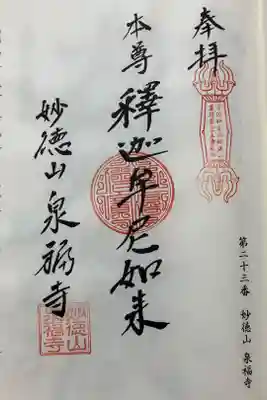 奉拝
本尊
釋迦牟尼如来
妙徳山泉福寺
第二十三番 妙徳山 泉福寺
妙徳山
泉福寺